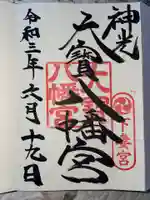 神光
大寶八幡宮
八幡宮
下妻宮
令和三年六月十九日